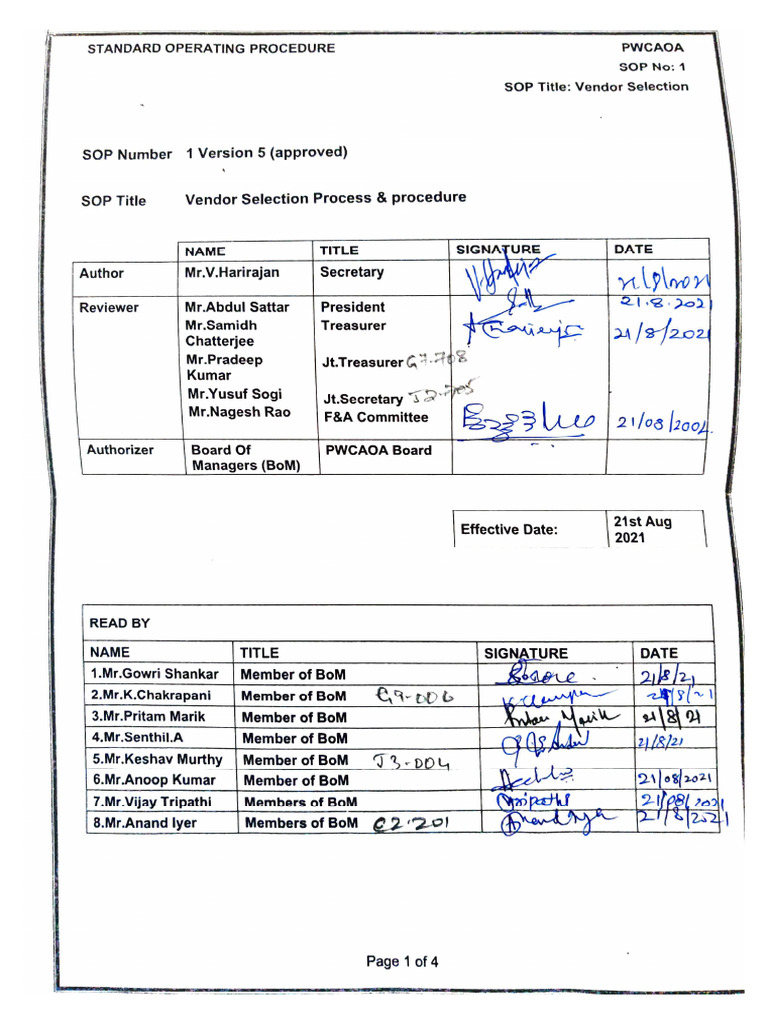 STANDARD OPERATING PROCEDURE PWCAOA
SOP No: 1
SOP Title: Vendor Selection
SOP Number 1 Version 5 (approved)
SOP Title Vendor Selection Process & procedure
NAME TITLE SIGNATURE DATE
Author Mr.V.Harirajan Secretary 21/8/2021
Reviewer Mr.Abdul Sattar President 21.8.2021
Mr.Samidh Treasurer 21/8/2021
Chatterjee
Mr.Pradeep Jt.Treasurer G7-708
Kumar
Mr.Yusuf Sogi Jt.Secretary J2-705
Mr.Nagesh Rao F&A Committee 21/08/2002.
Authorizer Board Of PWCAOA Board
Managers (BoM)
Effective Date: 21st Aug
2021
READ BY
NAME TITLE SIGNATURE DATE
1.Mr.Gowri Shankar Member of BoM 21/8/21
2.Mr.K.Chakrapani Member of BoM G9-006 21/8/21
3.Mr.Pritam Marik Member of BoM Pritam Marik 21/8/21
4.Mr.Senthil.A Member of BoM 21/8/21
5.Mr.Keshav Murthy Member of BoM J3-004
6.Mr.Anoop Kumar Member of BoM 21/08/2021
7.Mr.Vijay Tripathi Members of BoM Tripathi 21/08/2021
8.Mr.Anand Iyer Members of BoM C2-201 Anand Iyer 21/8/2021
Page 1 of 4